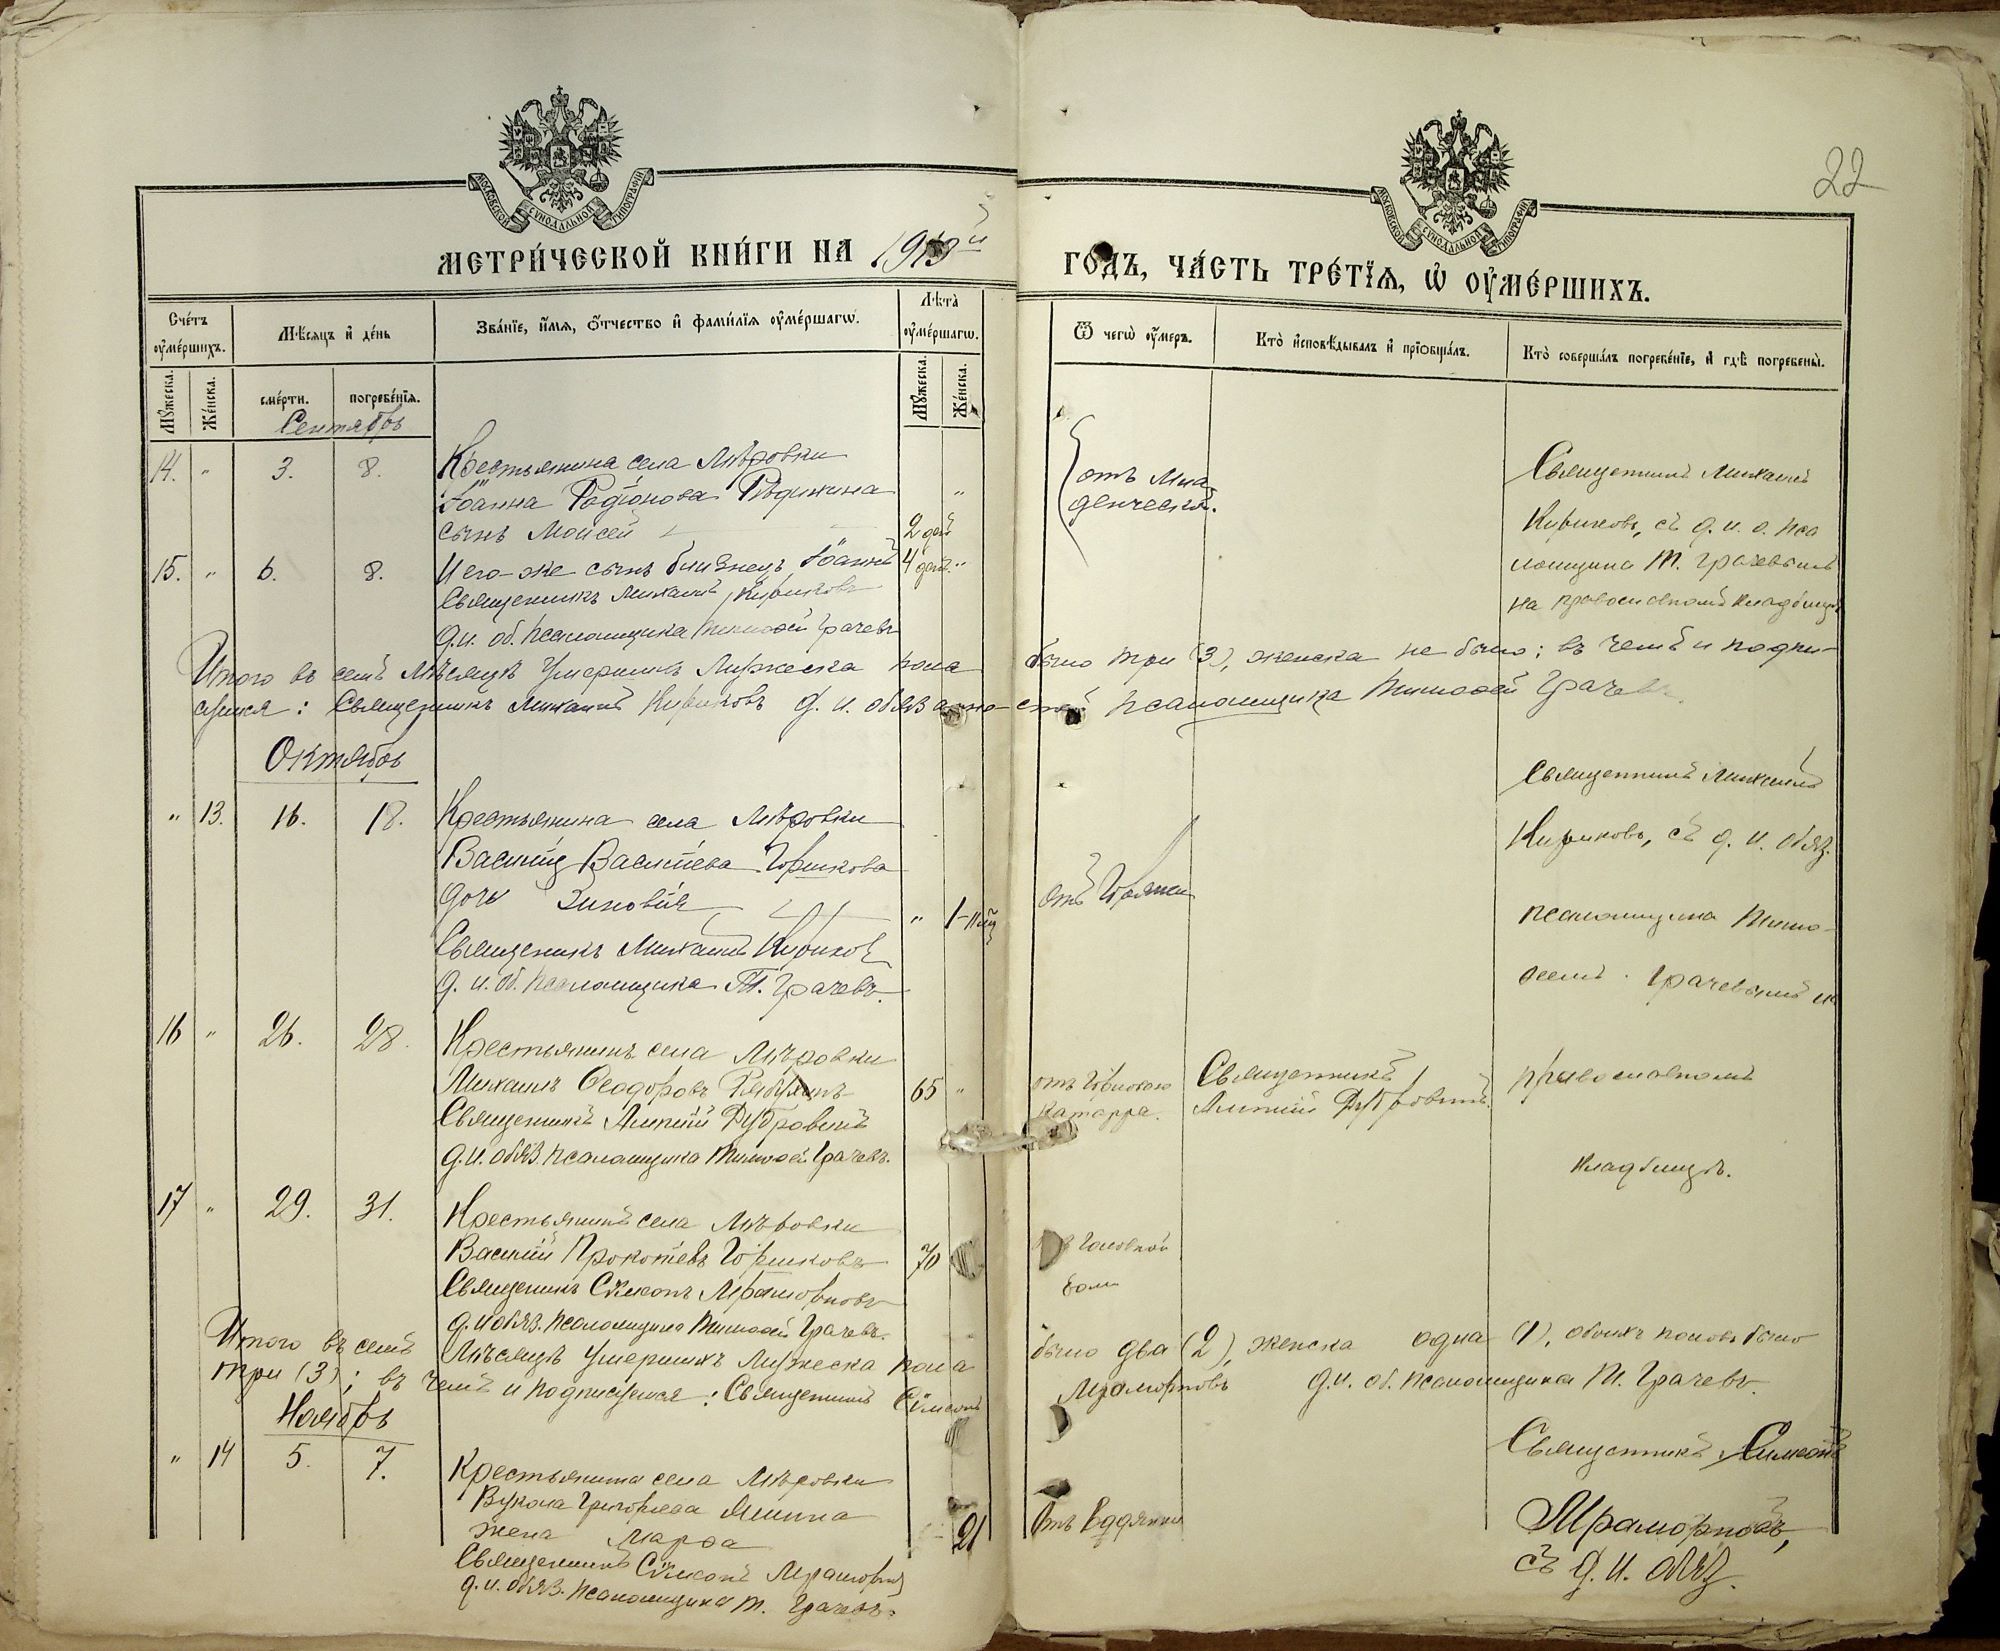 22
МОСКОВСКОЙ СѴНОДАЛЬНОЙ ТИПОГРАФІИ
МОСКОВСКОЙ СѴНОДАЛЬНОЙ ТИПОГРАФІИ
МЕТРИ́ЧЕСКОЙ КНИ́ГИ НА 1913й ГОДЪ, ЧА́СТЬ ТРЕ́ТІѦ, Ѽ ОУ҆МЕ́РШИХЪ.
Сче́тъ оу҆ме́ршихъ.
Мѣ́сяцъ и҆ де́нь
Зва́нїе, и҆́мѧ, ѻ҆́тчество и҆ фами́лїѧ оу҆ме́ршагѡ.
Лѣ́та оу҆ме́ршагѡ.
Ѿ чегѡ̀ оу҆́меръ.
Кто̀ и҆сповѣ́дывалъ и҆ прїѡбща́лъ.
Кто̀ соверша́лъ погребе́нїе, и҆ гдѣ̀ погребены̀.
Мꙋ́жеска. Же́нска. сме́рти. погребе́нїѧ. Мꙋ́жеска. Же́нска.
Сентябрь
14. " 3. 8. Крестьянина села Мѣровки
Іоанна Родіонова
сынъ Моисей 2 дней "
отъ Мла-
денческой.
Священникъ Михаилъ
Кириковъ, съ д. и. о. пса
ломщика Т. Грачевымъ
на православномъ кладбищѣ
15. " 6. 8. И его-же сынъ близнецъ Іоаннъ 4 дней. "
Священникъ Михаилъ Кириковъ
д.и. об. псаломщика Тимоѳей Грачевъ
Итого въ семъ мѣсяцѣ умершихъ мужеска пола было три (3), женска не было; въ чемъ и подпи-
суемся: Священникъ Михаилъ Кириковъ д. и. обязанностей псаломщика Тимоѳей Грачевъ
Октябрь
" 13. 16. 18. Крестьянина села Мѣровки
Василія Васильева Горшкова
дочь Зиновія " 1
Священникъ Михаилъ Кириковъ
д. и. об. псаломщика Т. Грачевъ.
Священникъ Михаилъ
Кириковъ, съ д. и. обяз.
псаломщика Тимо-
ѳеемъ Грачевымъ на
православномъ
кладбищѣ.
16 " 26. 28. Крестьянинъ села Мѣровки
Михаилъ Ѳеодоровъ 65 "
Священникъ Алексій Дубровскій
д.и. обяз. псаломщика Тимоѳей Грачевъ.
катарра.
Священникъ
Алексій Дубровскій.
17 " 29. 31. Крестьянинъ села Мѣровки
Василій Прокопіевъ Горшковъ 70
Священникъ Сѵмеонъ Мраморновъ
д. и обяз. псаломщика Тимоѳей Грачевъ.
головной
боли
Итого въ семъ мѣсяцѣ умершихъ мужеска пола было два (2), женска одна (1), обоихъ половъ было
три (3); въ чемъ и подписуемся: Священникъ Сѵмеонъ Мраморновъ д. и. об. псаломщика Т. Грачевъ.
Ноябрь
" 14 5. 7. Крестьянина села Мѣровки
Вукола Григорьева
жена Марѳа 21
Священникъ Сѵмеонъ Мраморновъ
д. и. обяз. псаломщика Т. Грачевъ.
Отъ водянки
Священникъ Симеонъ
Мраморновъ,
съ д. и. обяз.